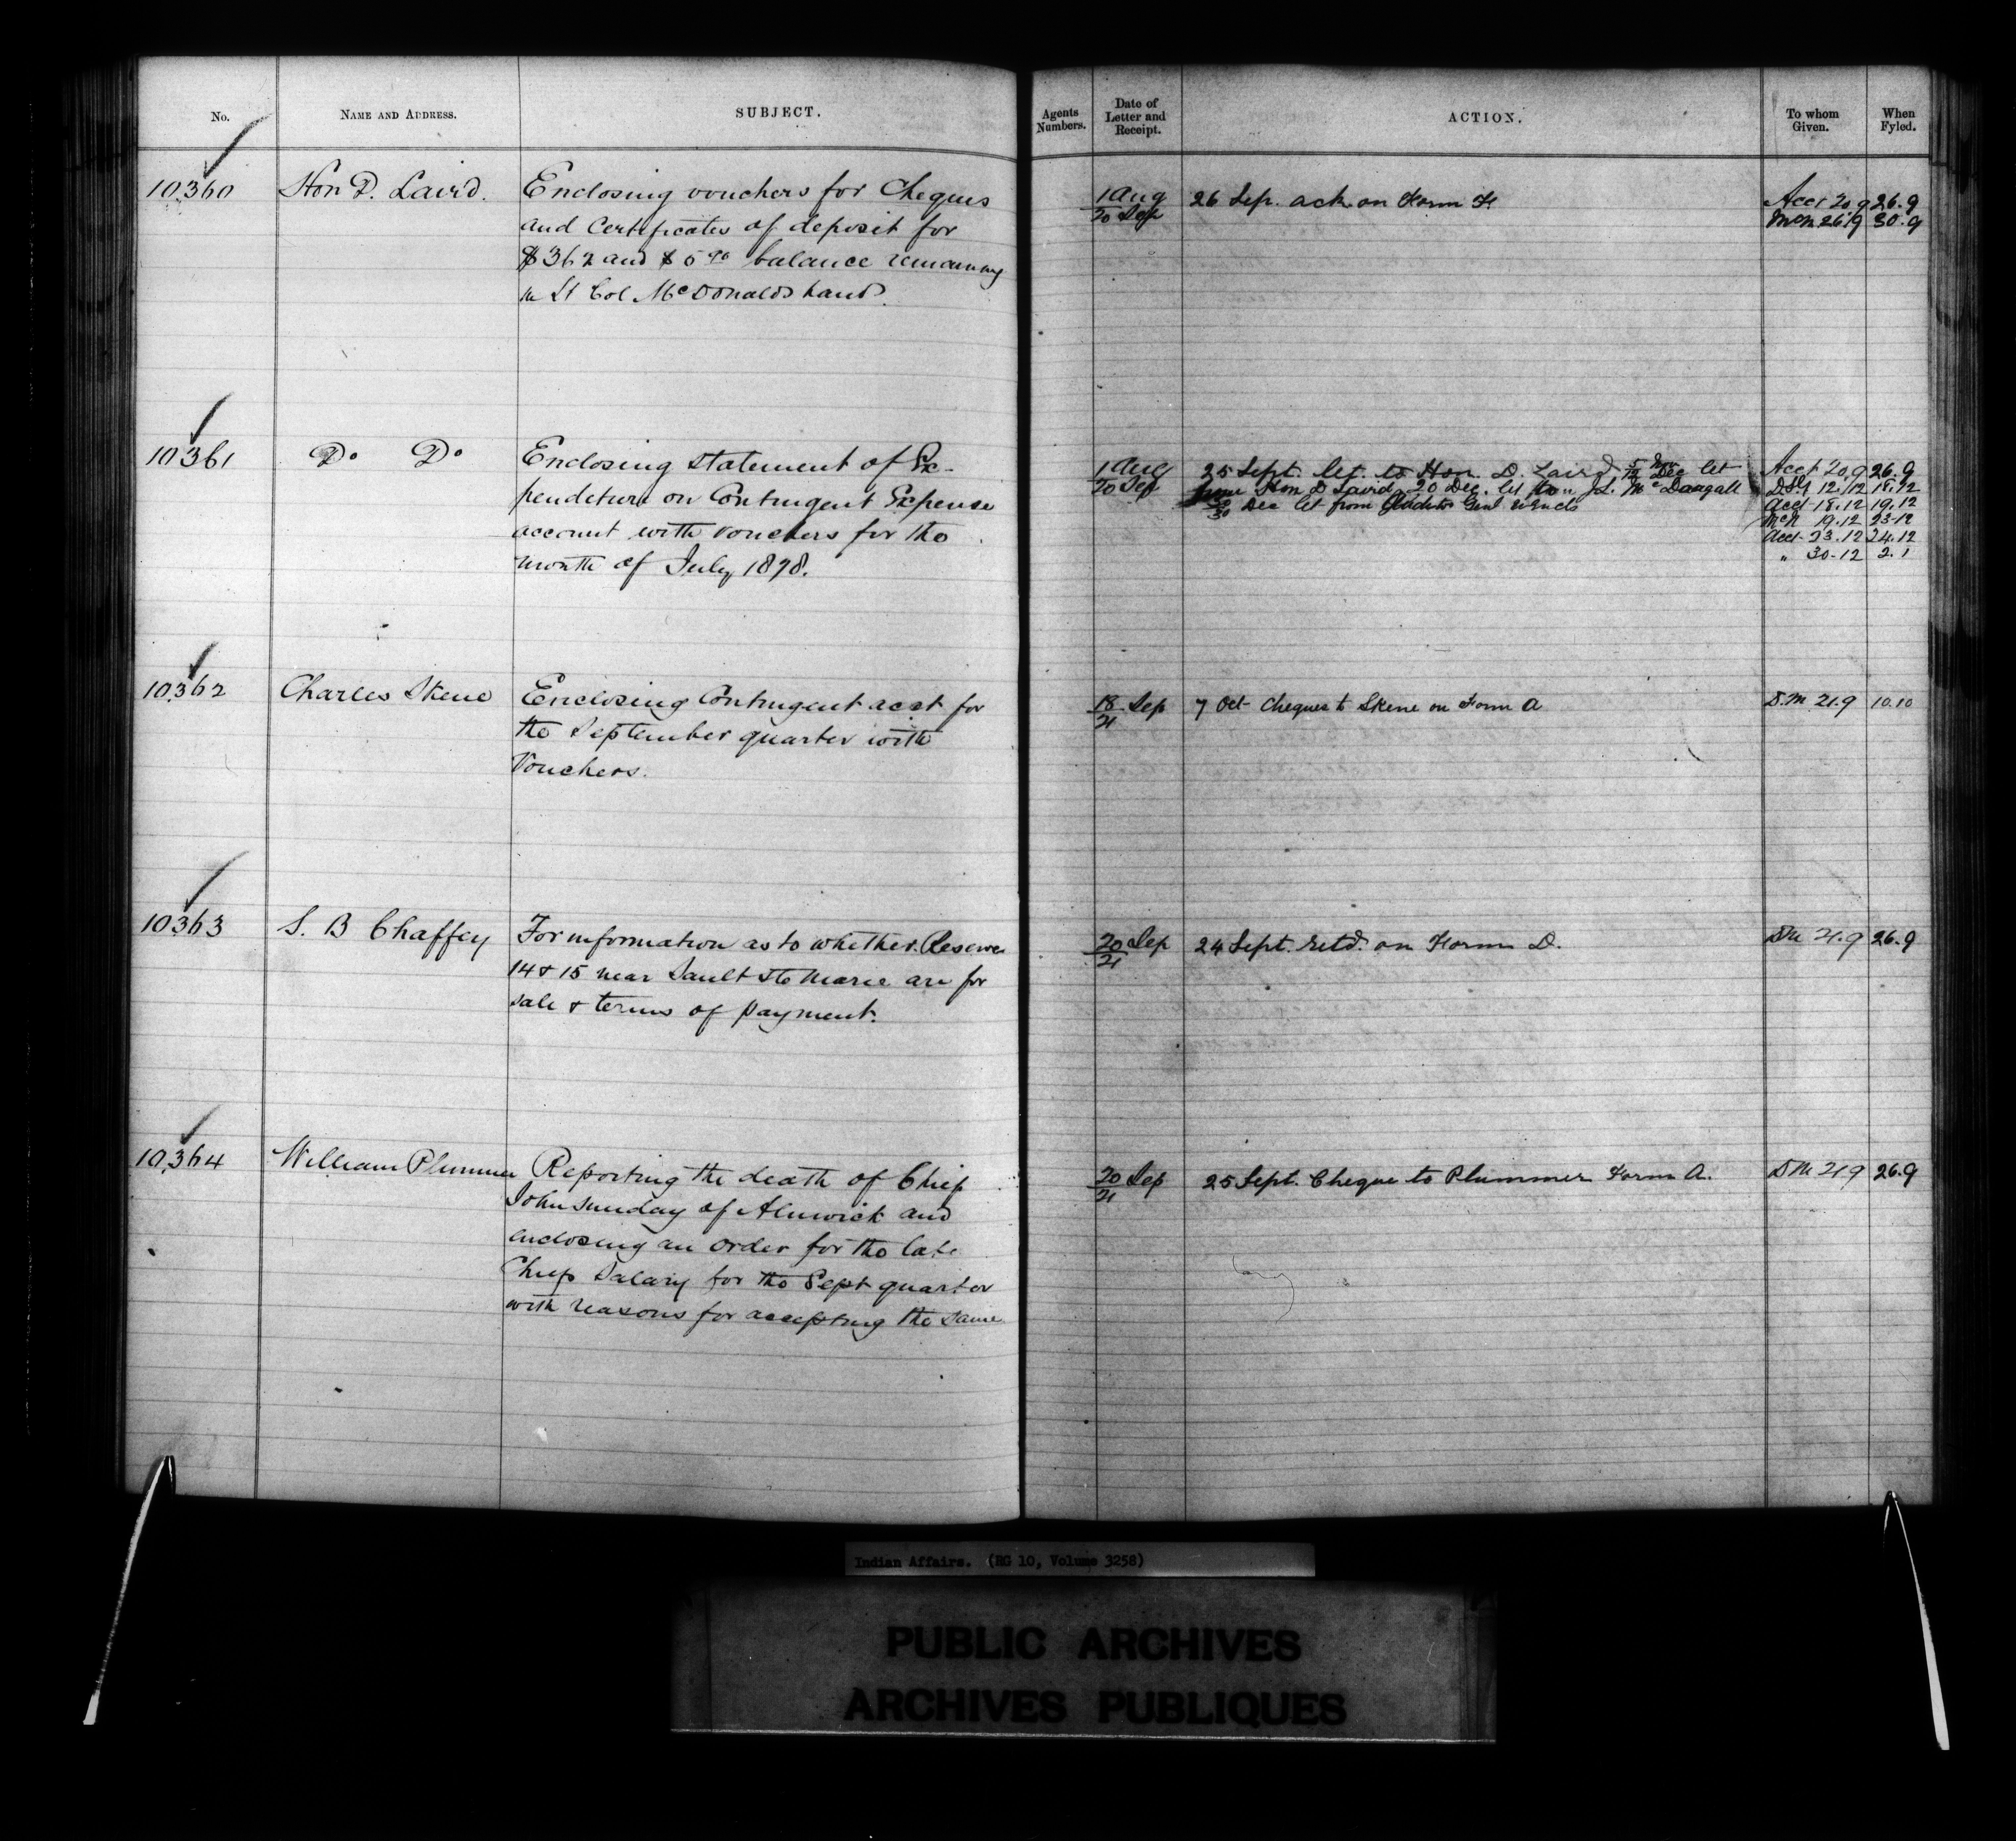 No. NAME AND ADDRESS. SUBJECT. Agents Numbers. Date of Letter and Receipt. ACTION. To whom Given. When Fyled.
10360 Hon D. Laird. Enclosing vouchers for Cheques
and Certificates of deposit for
$362 and $5 90 balance remaining
in Lt Col McDonalds hands.
1 Aug
20 Sep
26 Sep. ack on Form F.
Acct 20.9 26.9
McN 26.9 30.9
10361 Do Do Enclosing statement of Ex-
penditure on Contingent Expense
account with vouchers for the
month of July 1878.
1 Aug
20 Sep
25 Sept. let. to Hon. D. Laird 12 Dec let
from Hon D Laird. 20 Dec. let to J L. McDougall
30 Dec let from Auditor Genl
Acct 20.9 26.9
12/12 18.12
Acct 18.12 19.12
McN 19.12 23-12
Acct 23.12 24.12
" 30-12 2.1
10362 Charles Skene Enclosing Contingent acct for
the September quarter with
Vouchers.
18 Sep
21
7 Oct Cheques to Skene on Form A
D.M 21.9 10.10
10363 S. B Chaffey For information as to whether Reserve
14 & 15 near Sault Ste Marie are for
sale & terms of payment.
20 Sep
21
24 Sept. retd. on Form D.
DM 21.9 26.9
10,364 William Plummer Reporting the death of Chief
John Sunday of Alnwick and
enclosing an order for the late
Chiefs Salary for the Sept quarter
with reasons for accepting the same
20 Sep
21
25 Sept. Cheque to Plummer Form A.
DM 21.9 26.9
Indian Affairs. (RG 10, Volume 3258)
PUBLIC ARCHIVES
ARCHIVES PUBLIQUES